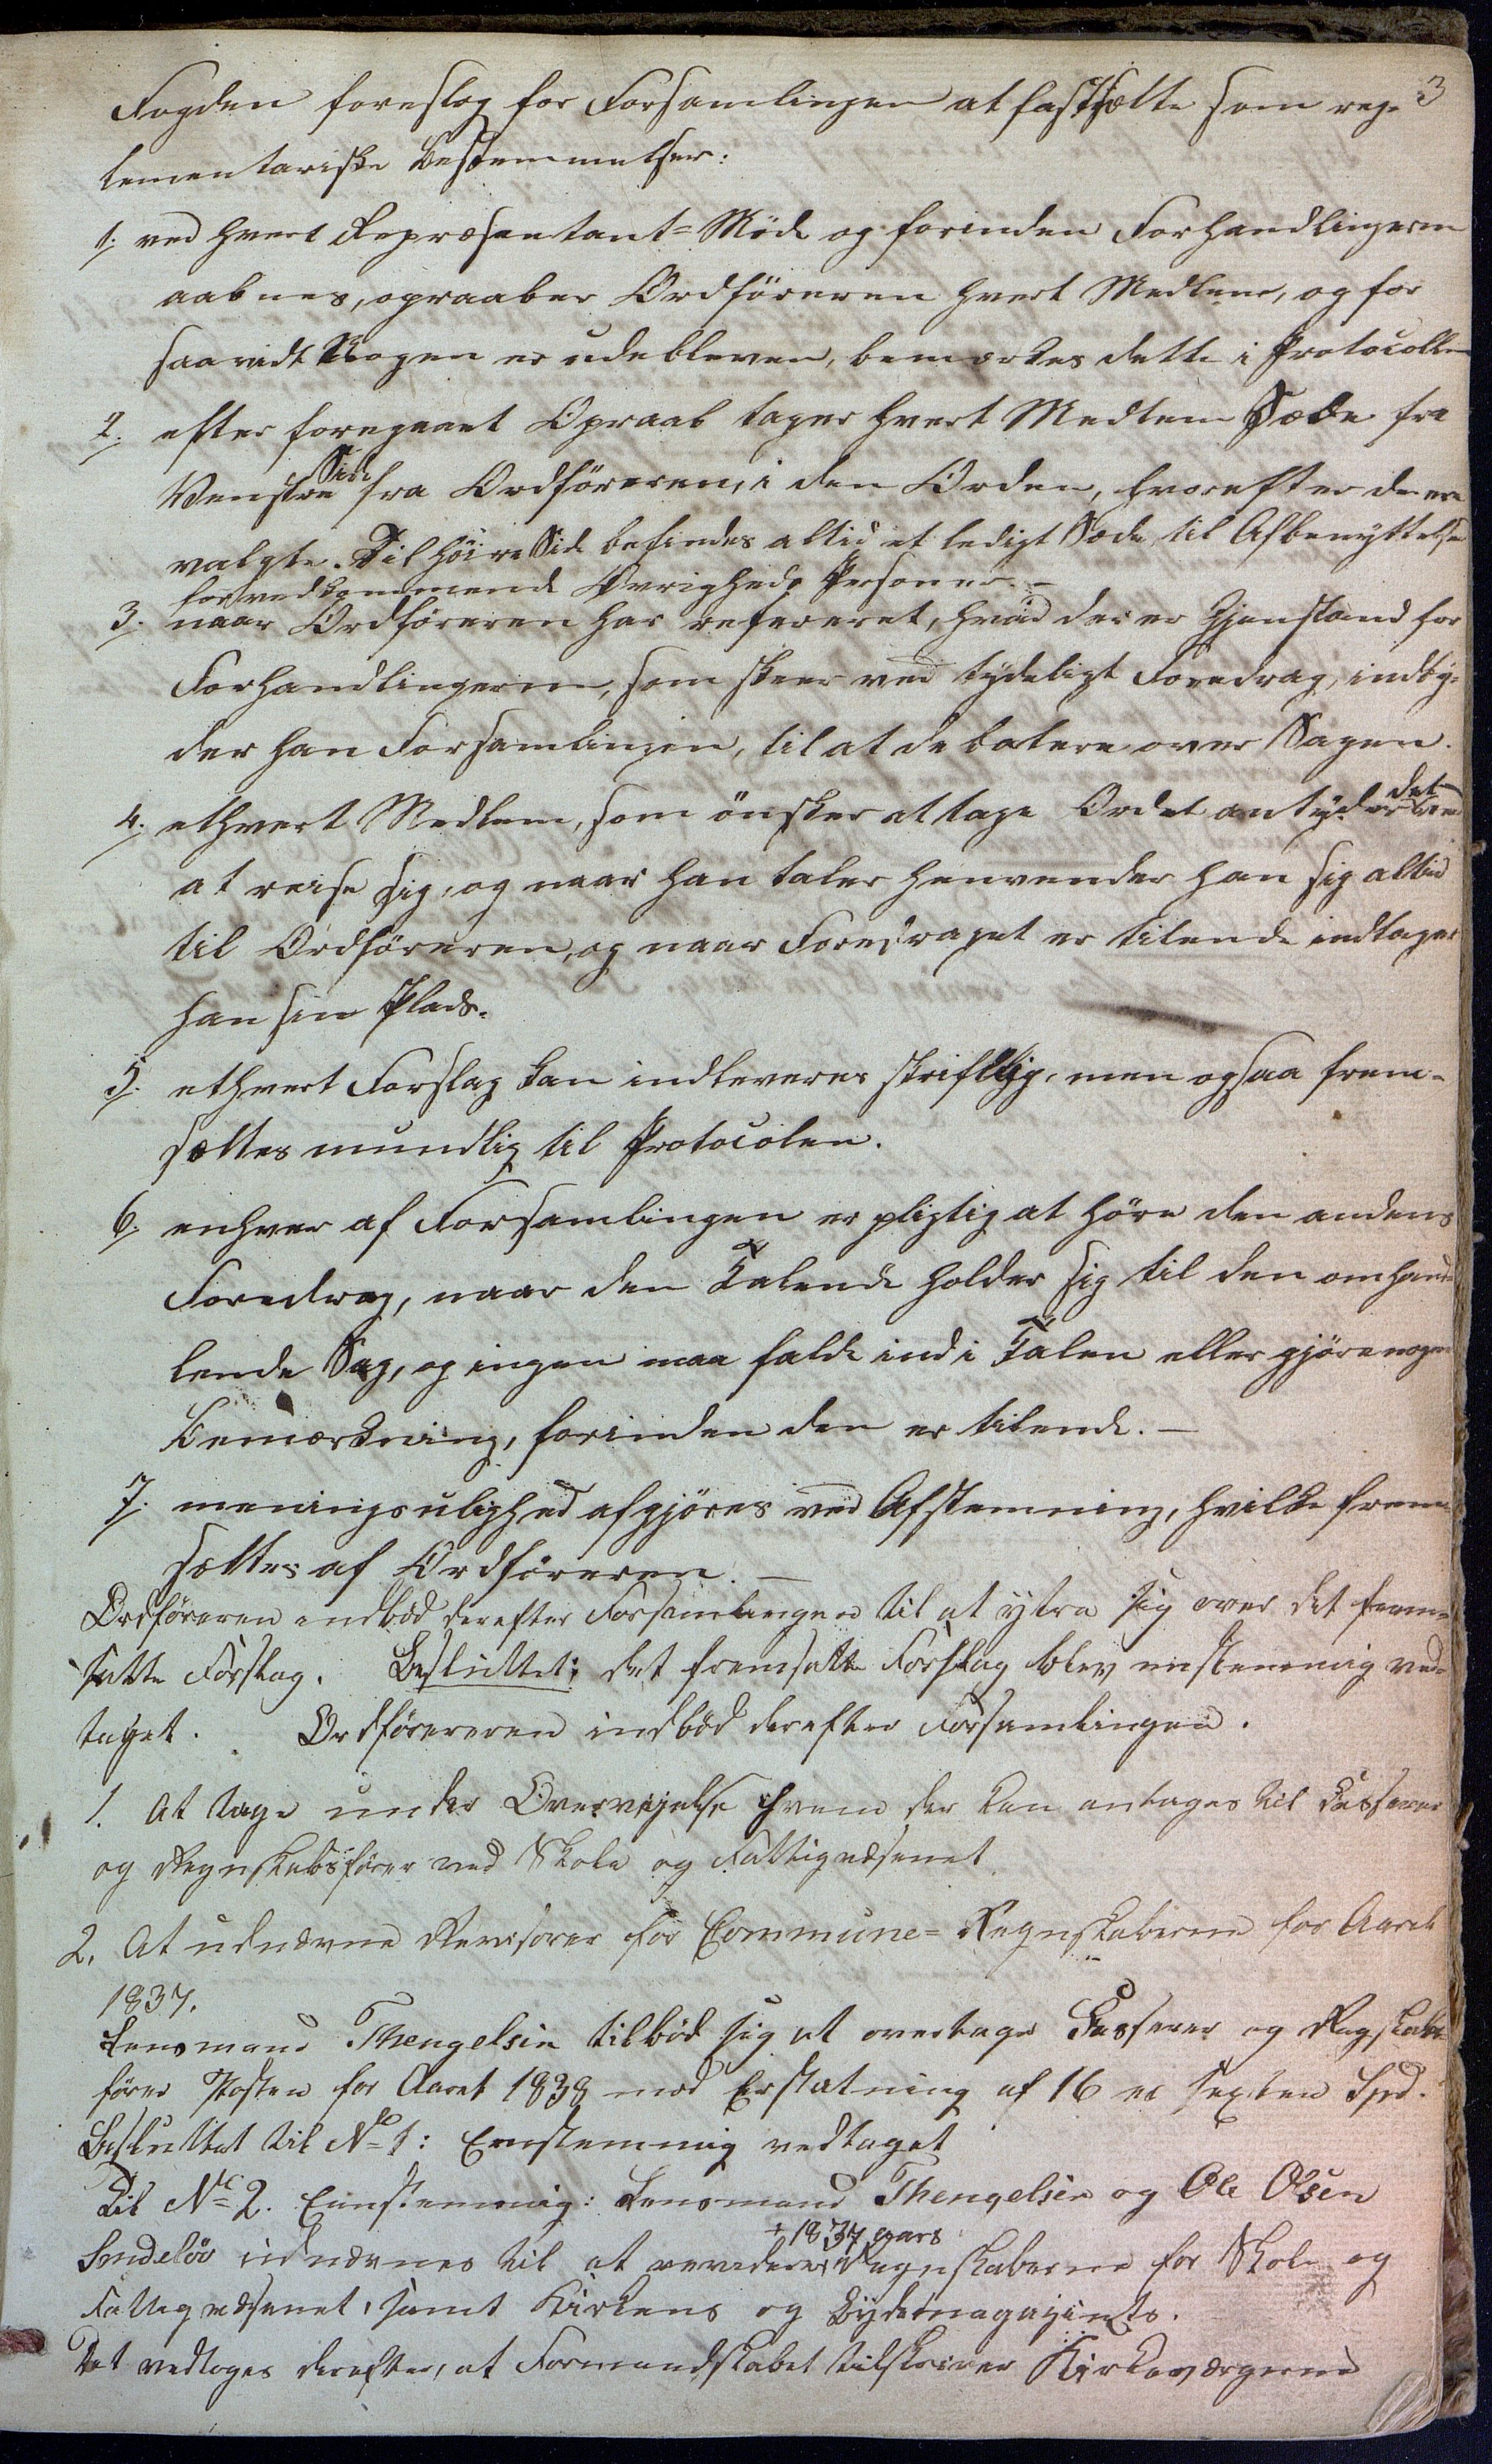 3
Fogden foreslog for Forsamlingen at fastsætte som reg-
lementariske Bestemmelser:
1. ved hvert Repræsentant-Möde og forinden Forhandlingerne
aabnes, opraaber Ordföreren hvert Medlem, og for
saavidt Nogen er udebleven, bemærkes dette i Protocollen
2. efter foregaaet Opraab tager hvert Medlem Sæde fra
Venstre Side fra Ordföreren, i den Orden, hvorefter de ere
valgte. Til höire Side befindes altid et ledigt Sæde til Afbenyttelse
for vedkommende Övrigheds Personer. -
3. naar Ordföreren har refereret, hvad der er Gjenstand for
Forhandlingerne, som skeer ved tydeligt Foredrag, indby-
der han Forsamlingen, til at debatere over Sagen.
4. ethvert Medlem, som önsker at tage Ordet antyder det ved
at reise sig, og naar han taler henvender han sig altid
til Ordföreren, og naar Foredraget er tilende indtager
han sin Plads.
5. ethvert Forslag kan indleveres skriftlig, men ogsaa frem-
sættes mundlig til Protocolen.
6. enhver af Forsamlingen er pligtig at höre den andens
Foredrag, naar den Talende holder sig til den omhand
lende Sag, og ingen maa falde ind i Talen eller gjöre nogen
Bemærkning, forinden den er tilende. -
7. meningsulighed afgjöres ved Afstemning, hvilke frem-
sættes af Ordföreren. -
Ordföreren indböd derefter Forsamlingen til at yttre sig over det frem-
satte Forslag. Besluttet: det fremsatte Forslag blev enstemmig ved-
taget. Ordföreren indböd derefter Forsamlingen.
1. At tage under Overvejelse hvem der kan antages til Casserer
og Regnskabsförer ved Skole og Fattigvæsenet
2. At udnævne Revisorer for Commune-Regnskaberne for Aaret
1837.
Lensmand Thengelsen tilböd sig at overtage Casserer og Regskabs
förer Posten for Aaret 1838 mod Erstatning af 16 er sexten Spd.
Besluttet til No 1: Enstemmig vedtaget
Til No 2. Eenstemmig: Lensmand Thengelsen og Ole Olsen
+ 1837 aars
udnævnes til at revidere Regnskaberne for Skole og
Fattigvæsenet, samt Kirkens og Bydemagazinets.
Det vedtoges derefter, at Formandskabet tilskriver Kirkeværgerne